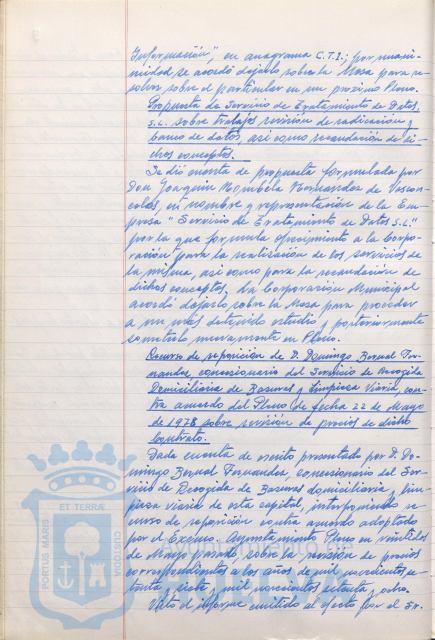 Información", en anagrama C.T.I.; por unani-
midad se acordó dejarlo sobre la Mesa para re-
solver sobre el particular en un próximo Pleno.
Propuesta de Servicio de Tratamiento de Datos,
S.L. sobre trabajos revisión de radicación y
banco de datos, así como recaudación de di-
chos conceptos.
Se dió cuenta de propuesta formulada por
Don Joaquín Mombela Hernandez de Vascon-
celos, en nombre y representación de la Em-
presa "Servicio de Tratamiento de Datos S.L."
por la que formula ofrecimiento a la Corpo-
ración para la realización de los servicios de
la misma, así como para la recaudación de
dichos conceptos. La Corporación Municipal
acordó dejarlo sobre la Mesa para proceder
a un más detenido estudio y posteriormente
someterlo nuevamente en Pleno.
Recurso de reposición de D. Domingo Bernal Fer-
nandez, concesionario del Servicio de Recogida
Domiciliaria de Basuras y Limpieza Viaria, con-
tra acuerdo del Pleno de fecha 22 de Mayo
de 1978 sobre revisión de precios de dicho
Contrato.
Dada cuenta de escrito presentado por D. Do-
mingo Bernal Fernandez, concesionario del Ser-
vicio de Recogida de Basuras domiciliaria y lim-
pieza viaria de esta capital, interponiendo re-
curso de reposición contra acuerdo adoptado
por el Excmo. Ayuntamiento Pleno en veintidos
de Mayo pasado, sobre la revisión de precios
correspondientes a los años de mil novecientos se-
tenta y siete y mil novecientos setenta y ocho.
Visto el informe emitido al efecto por el Sr.
PORTUS MARIS ET TERRÆ CUSTODIA